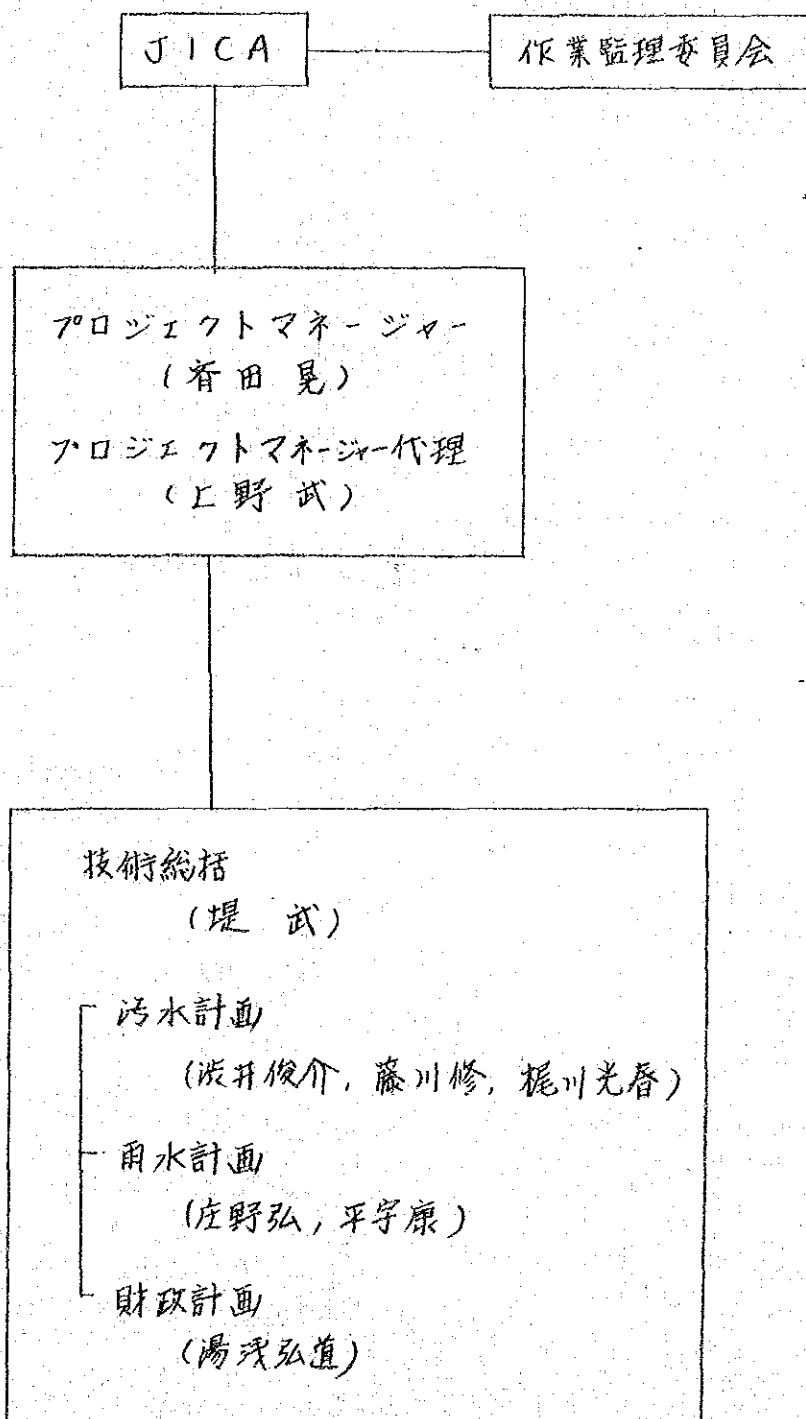 JICA
作業監理委員会
プロジェクトマネージャー
(斉田 晃)
プロジェクトマネージャー代理
(上野 武)
技術総括
(堤 武)
汚水計画
(渋井俊介, 藤川修, 梶川光春)
雨水計画
(庄野弘, 平宇康)
財政計画
(湯浅弘道)